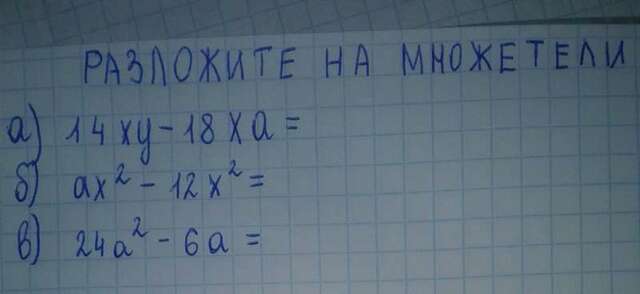 РАЗЛОЖИТЕ НА МНОЖЕТЕЛИ
а) 14xy - 18xa =
б) ax² - 12x² =
в) 24a² - 6a =